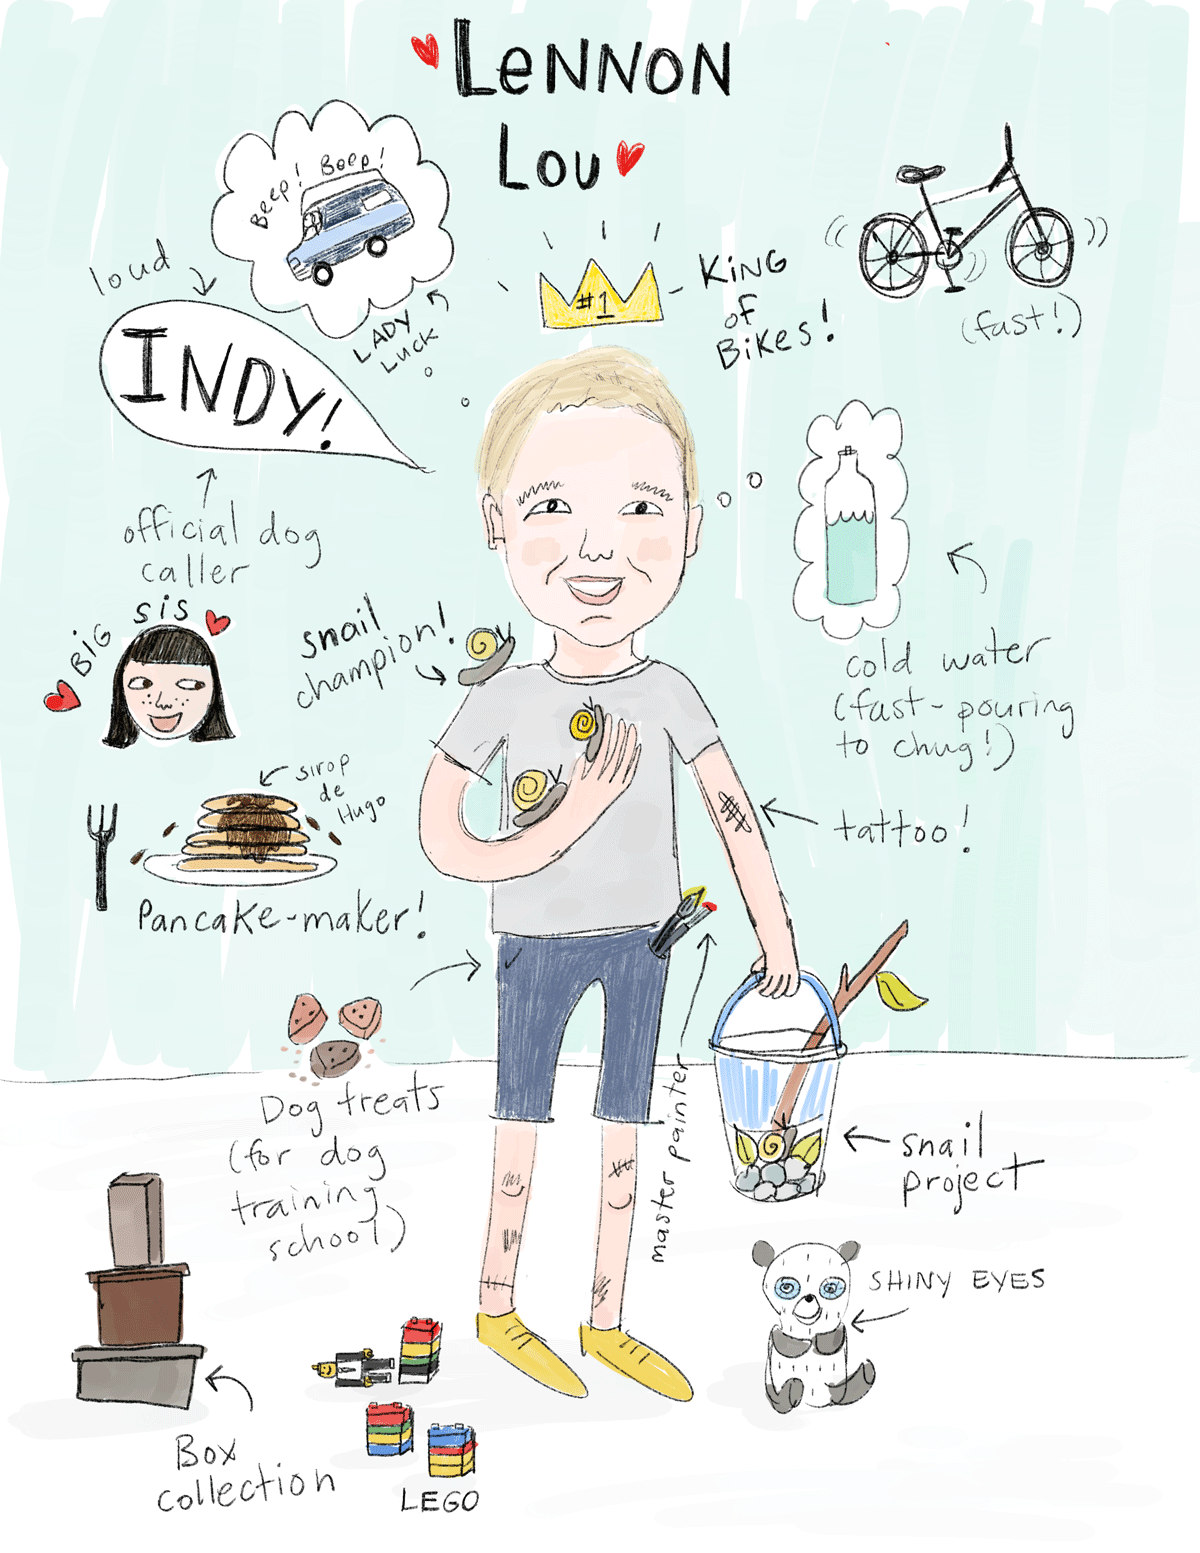 LeNNON
Lou
Beep! Beep!
loud
LADY
LUCK
INDY!
#1
KiNG
of
BiKES!
(fast!)
official dog
caller
BiG sis
snail
champion!
cold water
(fast-pouring
to chug!)
sirop
de
Hugo
tattoo!
Pancake-maker!
Dog treats
(for dog
training
school)
master painter
snail
project
SHINY EYES
Box
collection
LEGO